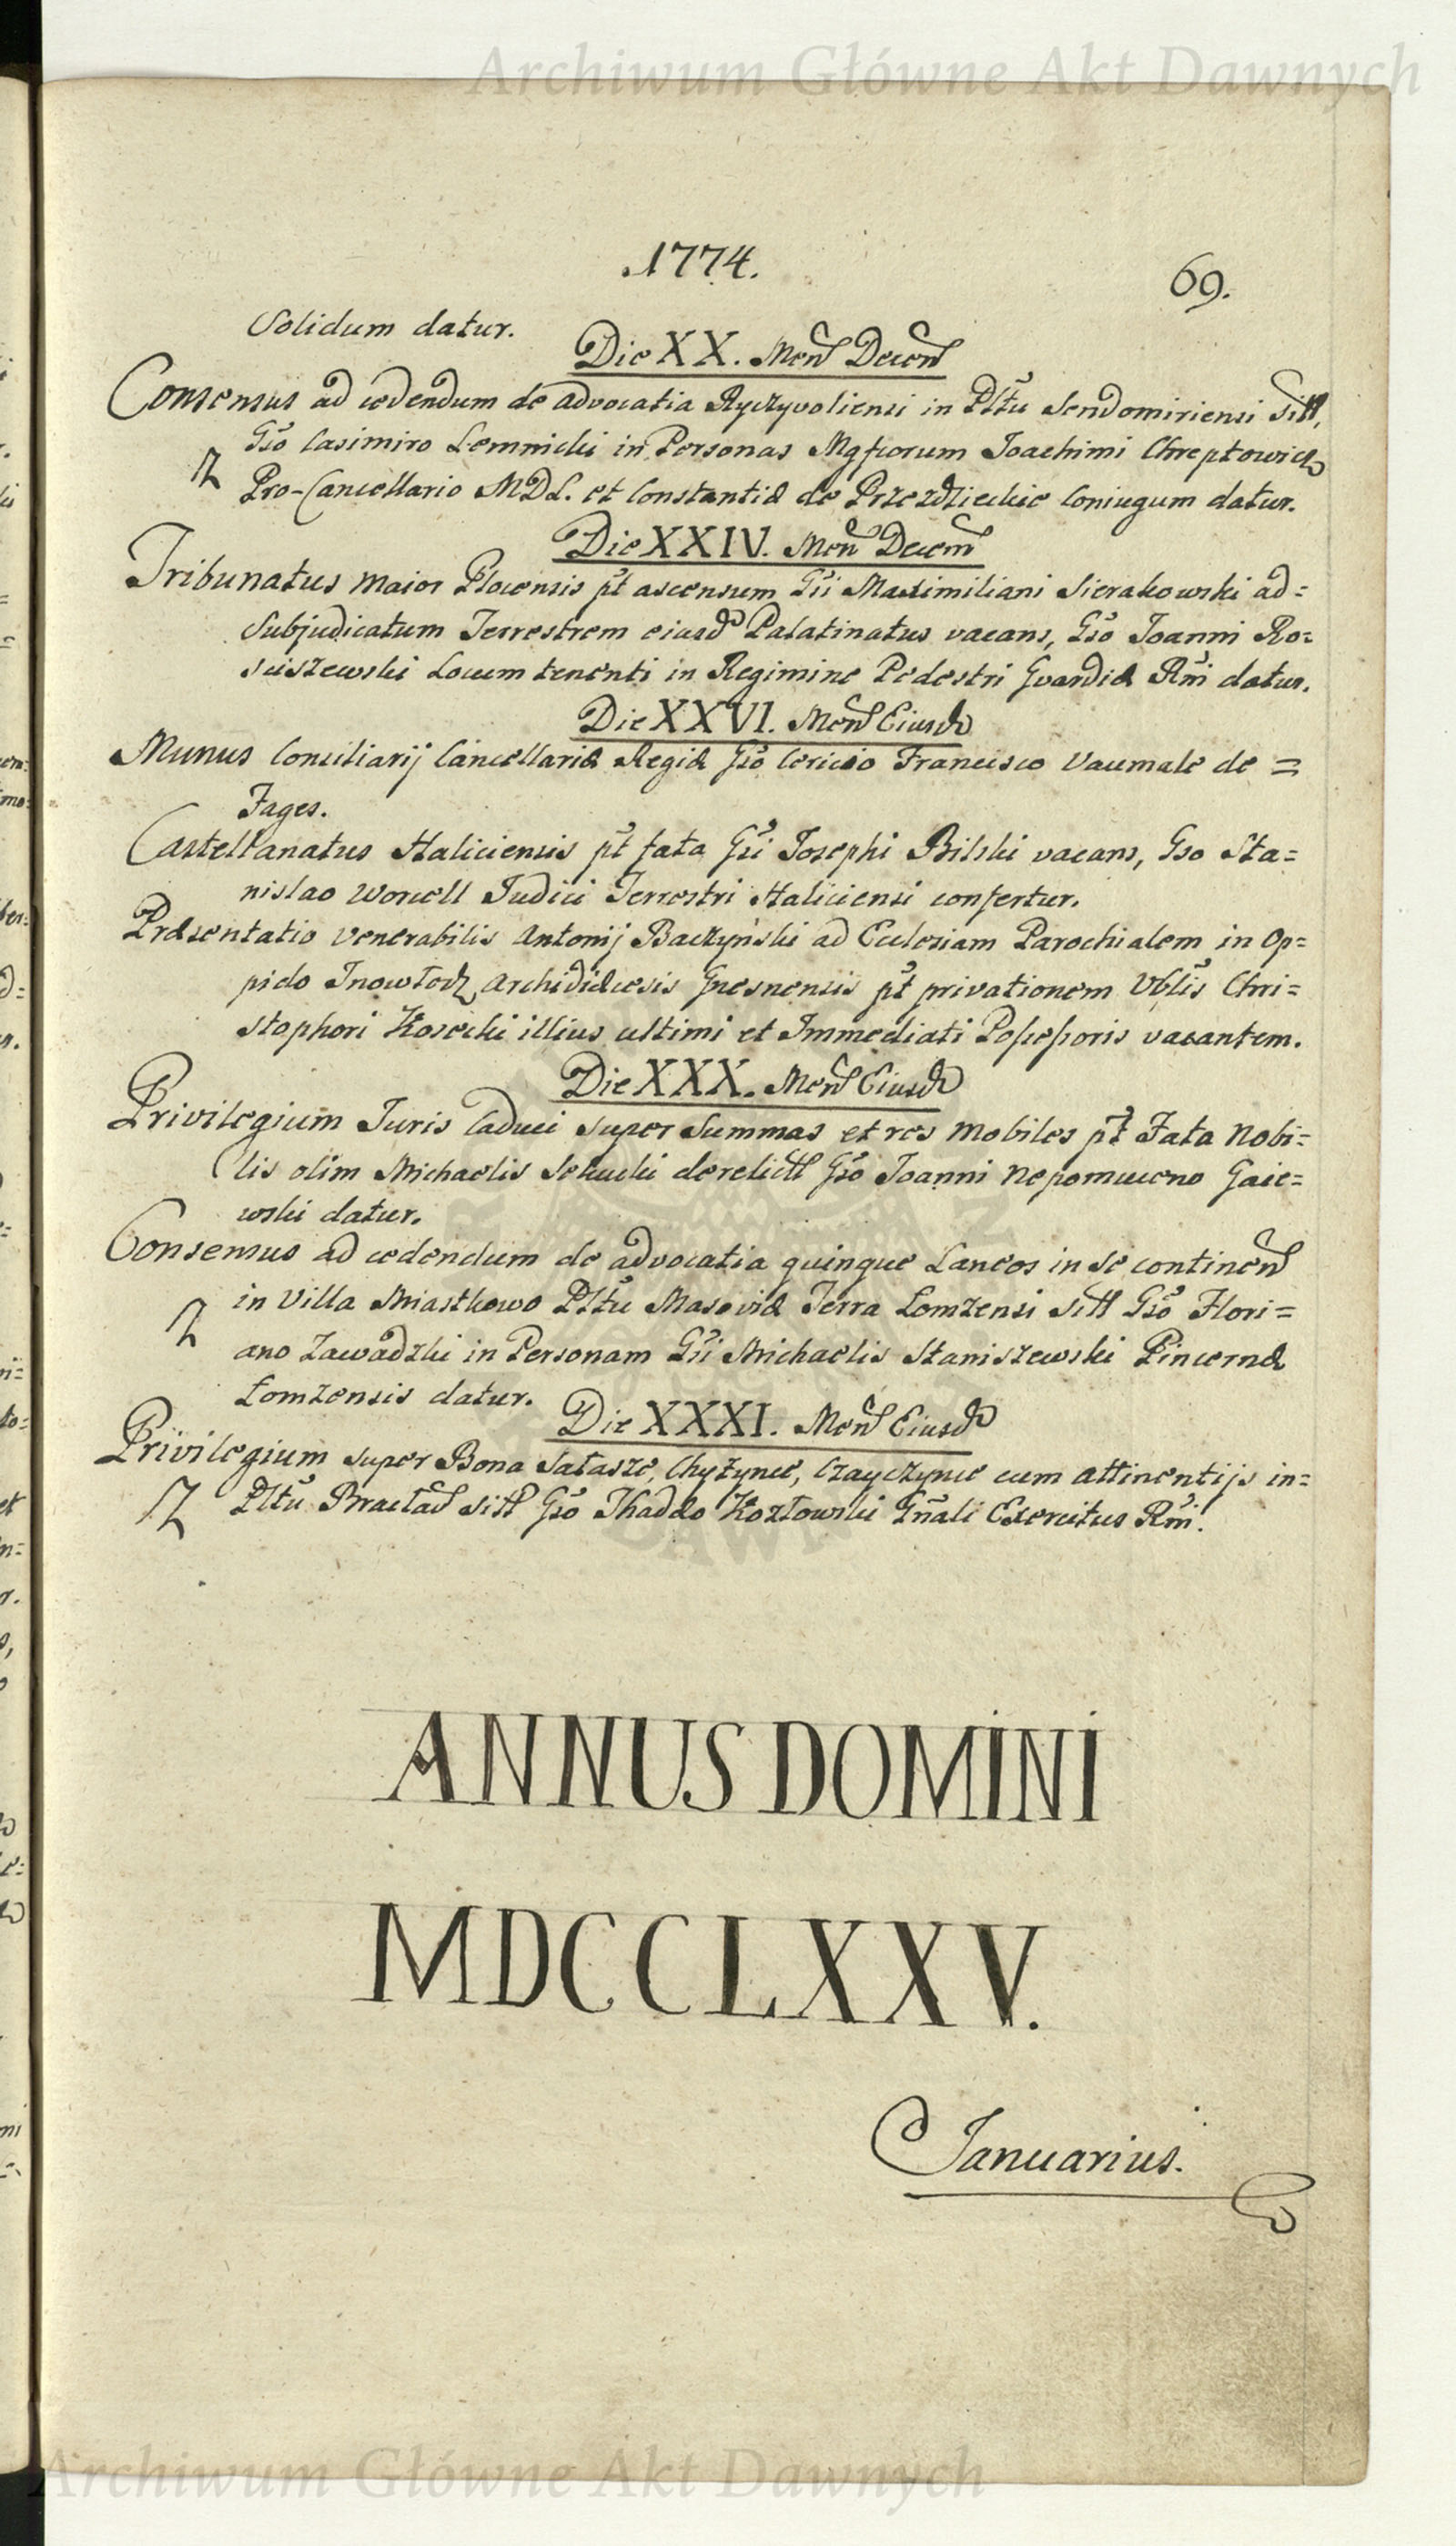 Archiwum Główne Akt Dawnych
1774.
69.
Solidum datur.
Die XX. Men̄ Decen̄
Consensus ad cedendum de advocatia Ryczyvoliensi in Pltũ Sendomiriensi Sitt,
Gso Casimiro Lemnicki in Personas Mgficorum Joachimi Chreptowicz
Pro-Cancellario MDL. et Constantiæ de Przezdzieckie Coniugum datur.
Die XXIV. Men̄ Decem̄
Tribunatus maior Plocensis pt ascensum Gsi Maximiliani Sierakowski ad=
Subjudicatum Terrestrem eiusd Palatinatus vacans, Gso Joanni Ro=
sciszewski Locum tenenti in Regimine Pedestri Gvardiæ Rni datur.
Die XXVI. Men̄ Eiusd
Munus Consiliarij Cancellariæ Regiæ Gso Francisco Vaumale de =
Fages.
Castellanatus Haliciensis pt fata Gsi Josephi Bilski vacans, Gso Sta=
nislao Worcell Judici Terrestri Haliciensi confertur.
Præsentatio Venerabilis Antonij Baczyński ad Ecclesiam Parochialem in Op=
pido Inowłodz Archidiæcesis Gnesnensis pt privationem Vblis Chri=
stophori Kosecki illius ultimi et Immediati Possessoris vacantem.
Die XXX. Men̄ Eiusd
Privilegium Juris Caduci super Summas et res mobiles pt Fata Nobi=
lis olim Michaelis derelict Gso Joanni Nepomuceno Gaie=
wski datur.
Consensus ad cedendum de advocatia quinque Laneos in se continen̄
in Villa Miastkowo Pltũ Masoviæ Terra Lomzensi Sitt Gso Flori=
ano Zawadzki in Personam Gsi Michaelis Staniszewski Pincernæ
Lomzensis datur.
Die XXXI. Men̄ Eiusd
Privilegium super Bona Sałasze, Chyżynce, Czayczynce cum attinentijs in=
Pltũ Bracłav Sitt Gso Thaddo Kozłowski Gnali Exercitus Rni.
ANNUS DOMINI
MDCCLXXV.
Januarius.
Archiwum Główne Akt Dawnych